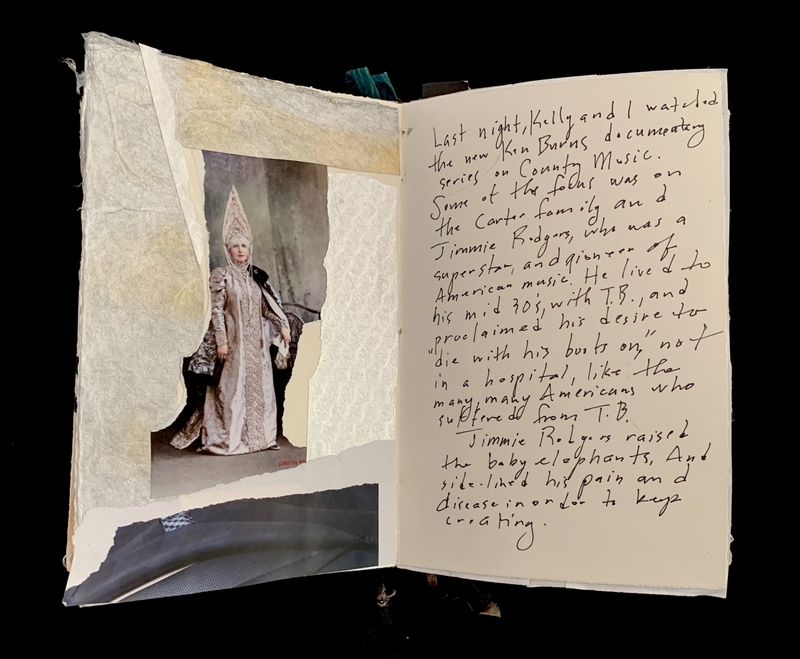 Color by
Last night, Kelly and I watched
the new Ken Burns documentary
series on Country Music.
Some of the focus was on
the Carter family and
Jimmie Rodgers, who was a
superstar, and pioneer of
American music. He lived to
his mid 30's, with T.B., and
proclaimed his desire to
"die with his boots on," not
in a hospital, like the
many many Americans who
suffered from T.B.
Jimmie Rodgers raised
the baby elephants, And
side-lined his pain and
disease in order to keep
creating.